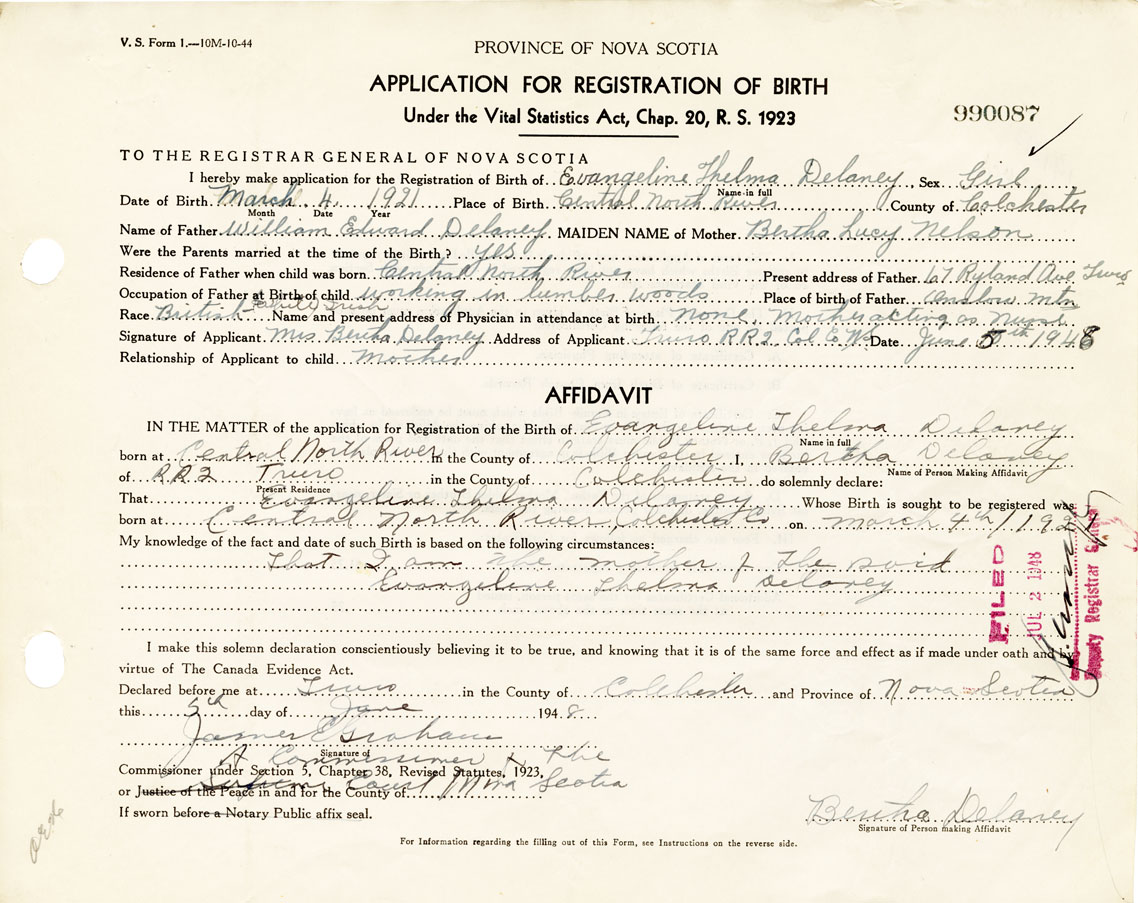 V. S. Form 1.—10M-10-44
PROVINCE OF NOVA SCOTIA
APPLICATION FOR REGISTRATION OF BIRTH
Under the Vital Statistics Act, Chap. 20, R. S. 1923
990087
TO THE REGISTRAR GENERAL OF NOVA SCOTIA
I hereby make application for the Registration of Birth of Evangeline Thelma Delaney, Sex Girl
Name in full
Date of Birth March 4, 1921 Place of Birth Central North River County of Colchester
Month Date Year
Name of Father William Edward Delaney MAIDEN NAME of Mother Bertha Lucy Nelson
Were the Parents married at the time of the Birth? yes
Residence of Father when child was born Central North River Present address of Father 67 Ryland Ave Truro
Occupation of Father at Birth of child working in lumber woods Place of birth of Father Onslow Mtn
Race British White Irish Name and present address of Physician in attendance at birth none, Mother acting as Nurse
Signature of Applicant Mrs Bertha Delaney Address of Applicant Truro R.R.2 Col Co NS Date June 5th 1948
Relationship of Applicant to child Mother
AFFIDAVIT
IN THE MATTER of the application for Registration of the Birth of Evangeline Thelma Delaney
Name in full
born at Central North River in the County of Colchester I, Bertha Delaney
Name of Person Making Affidavit
of R.R.2 Truro in the County of Colchester do solemnly declare:
Present Residence
That Evangeline Thelma Delaney Whose Birth is sought to be registered was
born at Central North River, Colchester Co on March 4th, 1921
My knowledge of the fact and date of such Birth is based on the following circumstances:
That I am the mother of the said
Evangeline Thelma Delaney
FILED
JUL 2 1948
Deputy Registrar General
I make this solemn declaration conscientiously believing it to be true, and knowing that it is of the same force and effect as if made under oath and by
virtue of The Canada Evidence Act.
Declared before me at Truro in the County of Colchester and Province of Nova Scotia
this 5th day of June 1948
James E Graham
Signature of
A Commissioner of the
Commissioner under Section 5, Chapter 38, Revised Statutes, 1923,
Supreme Court Nova Scotia
or Justice of the Peace in and for the County of
If sworn before a Notary Public affix seal.
Bertha Delaney
Signature of Person making Affidavit
For Information regarding the filling out of this Form, see Instructions on the reverse side.